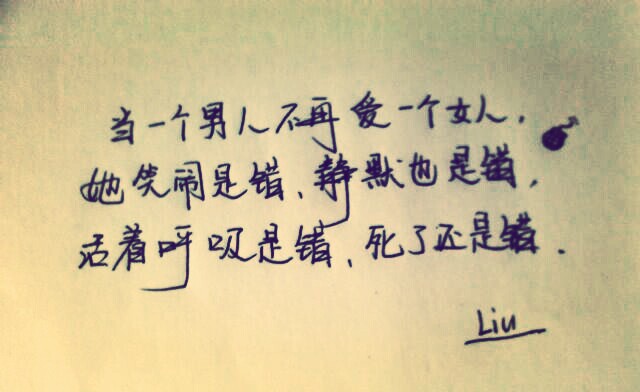 当一个男人不再爱一个女人，
她笑闹是错、静默也是错，
活着呼吸是错、死了还是错．
Liu